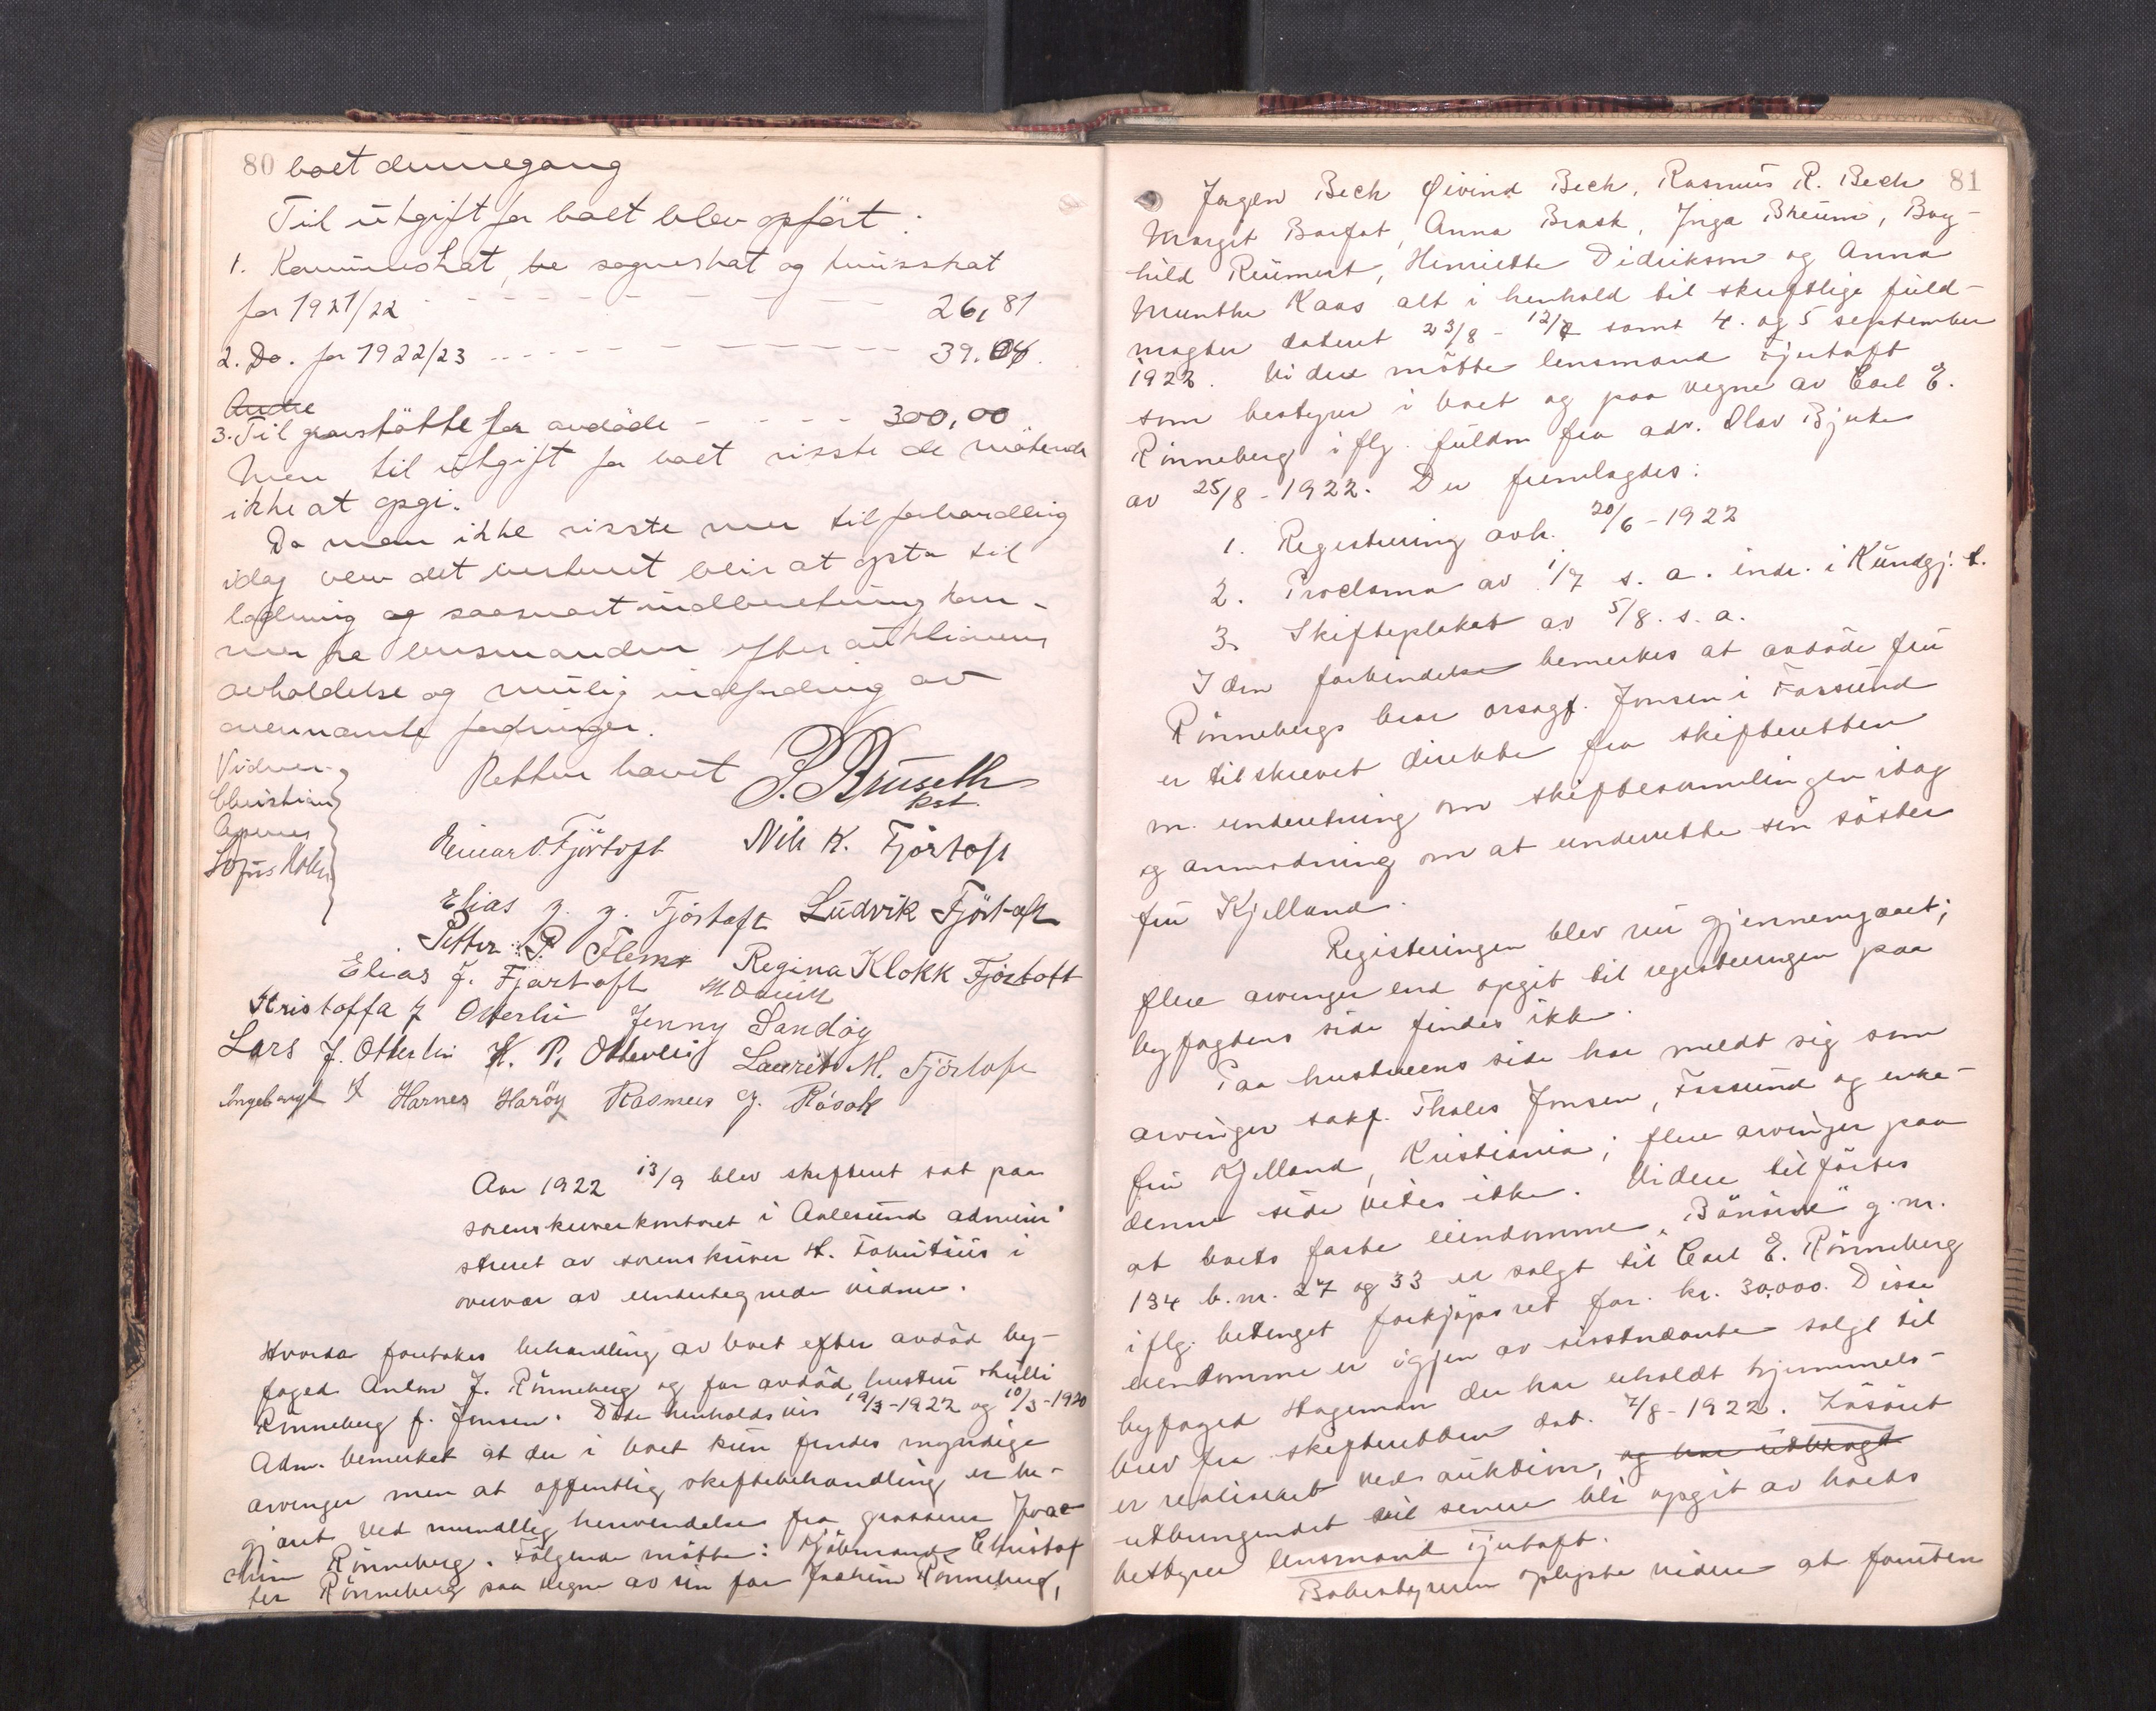 80 boet dennegang
Til utgift for boet blev opført:
1. Kommuneskat, sogneskat og huusskat
for 1921/22 - - - - - - - - - - 26,81
2. Do. for 1922/23 - - - - - - - - 39.04.
Andre
3. Til gravstötte for avdöde - - - - 300,00
Mer til utgift for boet visste de mötende
ikke at opgi.
Da man ikke visste mer til forhandling
idag blev det besluttet at opsta til
og saasnart indberetning kom-
mer fra lensmanden efter auktionens
avholdelse og mulig indfordring av
ovennævnte fordringer.
Retten hævet
Vidner:
Christian
Sofus Holm
P. Bruseth
kst.
Einar O. Fjörtoft Nils K. Fjörtoft
Elias J. J. Fjörtoft Ludvik Fjörtoft
Petter P. Flem Regina Klokk Fjörtoft
Elias J. Fjørtoft
Kristoffa J Otterlei Jenny Sandöy
Lars J. Otterlei K. P. Otterlei Laurits M. Fjörtoft
Ingeborgt J Harnes Haröy Rasmus J. Rösok
Aar 1922 13/9 blev skifteret sat paa
sorenskriverkontoret i Aalesund admini-
streret av sorenskriver H. Fabritius i
overvær av undertegnede vidner.
Hvorda foretokes behandling av boet efter avdöd by-
foged Anton J. Rönneberg og for avdöd hustru
Rönneberg f. Jonsen. Døde henholdsvis 19/3-1922 og 10/3-1920
Adm. bemerket at der i boet kun findes myndige
arvinger men at offentlig skiftebehandling er be-
gjært ved mundtlig henvendelse fra grosserer Joac-
chim Rönneberg. Fölgende mötte: kjöbmand Christof
fer Rönneberg paa vegne av sin far Joachim Rönneberg,
81
Jørgen Bech Øivind Bech, Rasmus R. Bech
Margit Barfot, Anna Brask, Inga Bheumi, Bog-
hild Reumert, Henriette Didrikson og Anna
Munthe Kaas alt i henhold til skriftlige fuld-
magter datert 23/8 - 12/8 samt 4. og 5 september
1922. Videre mötte lensmand Fjertoft
som bestyrer i boet og paa vegne av Carl E.
Rönneberg iflg. fuldm fra adv. Olav Bjerke
av 25/8-1922. Der fremlagdes:
1. Registrering avh. 20/6-1922
2. Proclama av 1/7 s. a. indr. i Kundgj. t.
3. Skifteplakat av 5/8. s. a.
I den forbindelse bemerkes at avdöde fru
Rönnebergs bror orsagf. Jonsen i Farsund
er tilskrevet direkte fra skifteretten
m. underretning om skiftesamlingen idag
og anmodning om at underrette sin söster
fru Kjelland.
Registeringen blev nu gjennemgaaet;
flere arvinger end opgit til registreringen paa
byfogdens side findes ikke.
Paa hustruens side har meldt sig som
arvinger sakf. Thales Jonsen, Farsund og enke-
fru Kjelland, Kristiania; flere arvinger paa
denne side vites ikke. Videre tilförtes
at boets faste eiendomme g. nr.
134 b. nr. 27 og 33 er solgt til Carl E. Rönneberg
iflg. betinget forkjöpsret for kr. 30,000. Disse
eiendomme er igjen av sisstnævnte solgt til
byfoged Hageman der har erholdt hjemmels-
brev fra skifteretten dat. 7/8-1922. Lösöret
er realisert ved auktion, og har utbragt
utbringendet vil senere bli opgit av boets
bestyrer lensmand Fjertoft.
Bobestyreren oplyste videre at foruten